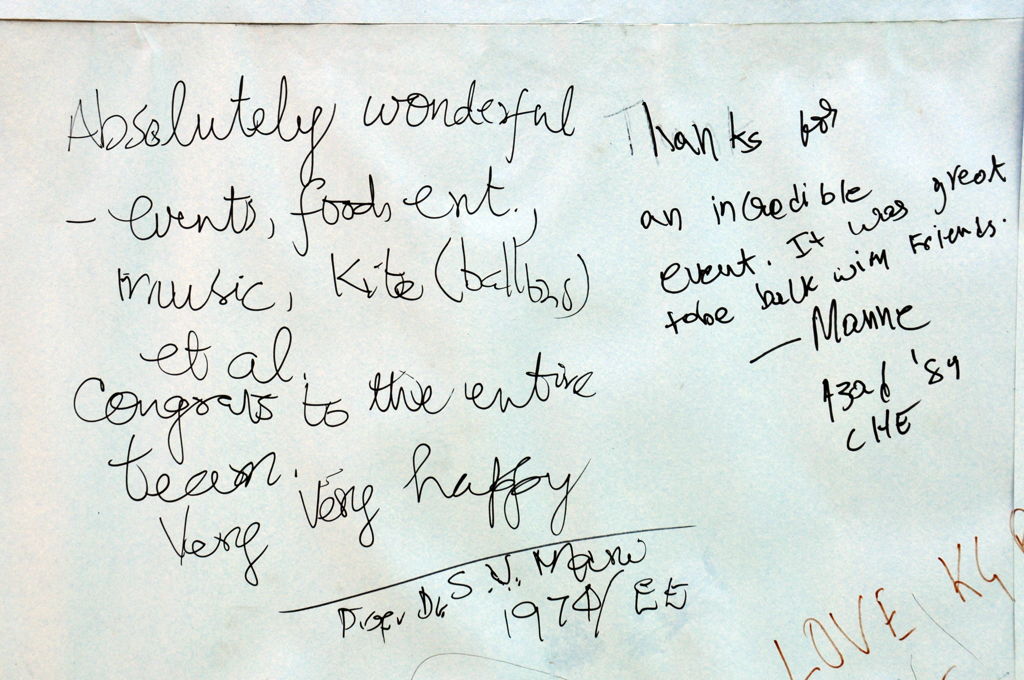 Absolutely wonderful
- events, food, ent.,
music, Kite (balloons)
et al.
Congrats to the entire
team.
Very Very happy
S. V.
1974/ EE
Thanks for
an incredible
event. It was great
to be back with Friends.
Azad '89
CHE
LOVE, KG